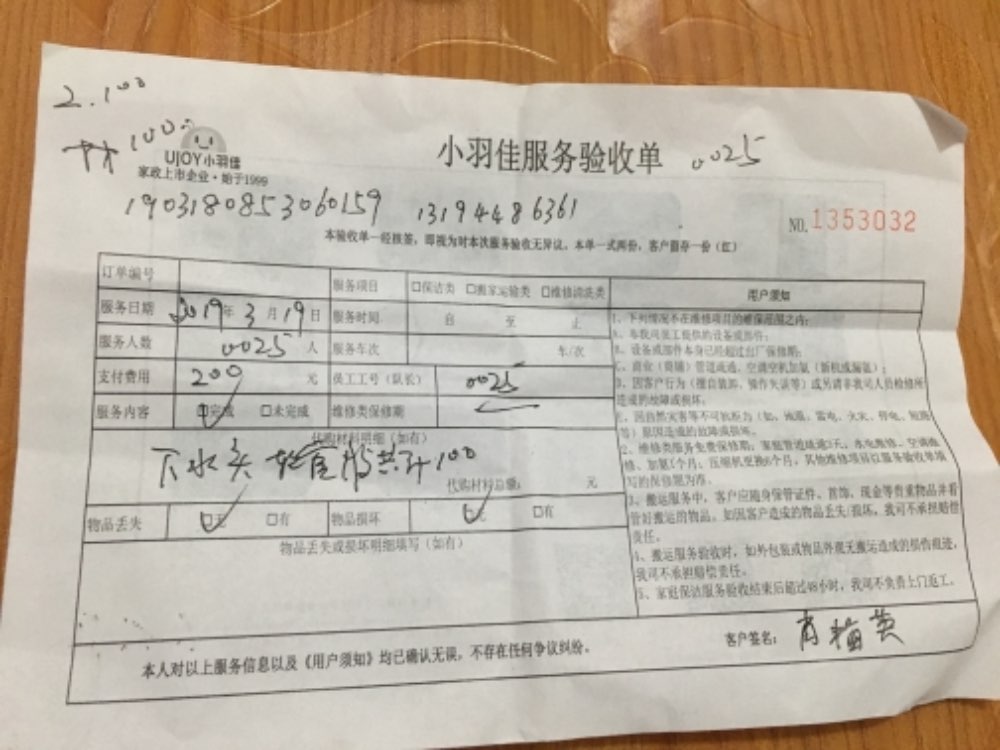 2.100
材100.
UJOY小羽佳
家政上市企业·始于1999
小羽佳服务验收单 0025
1903180853060159 13194486361
NO.1353032
本验收单一经接签,即视为对本次服务验收无异议。本单一式两份,客户留存一份(红)
订单编号 服务项目 □保洁类 □搬家运输类 □维修清洗类
服务日期 2019年3月19日 服务时间 自 至 止
服务人数 0025 人 服务车次 车/次
支付费用 200 元 员工工号(队长) 0025
服务内容 □完成 □未完成 维修类保修期
代购材料明细(如有)
下水头 软管 共计100
代购材料总额: 元
物品丢失 □无 □有 物品损坏 □无 □有
物品丢失或损坏明细填写(如有)
用户须知
1、下列情况不在维修项目的维保范围之内:
A、非我司员工提供的设备或部件;
B、设备或部件本身已经超过出厂保修期;
C、商业(商铺)管道疏通、空调空机加氨(新机或漏氨);
D、因客户行为(擅自装卸、操作失误等)或另请非我司人员检修所
造成的故障或损坏。
E、因自然灾害等不可抗拒力(如、地震、雷电、火灾、停电、短路
等)原因造成的故障或损坏。
2、维修类服务免费保修期:家庭管道疏通3天、水电维修、空调维
修、加氨1个月、压缩机更换6个月,其他维修项目以服务验收单填
写的保修期为准。
3、搬运服务中,客户应随身保管证件、首饰、现金等贵重物品并看
管好搬运的物品。如因客户造成的物品丢失/损坏,我司不承担赔偿
责任。
4、搬运服务验收时,如外包装或物品外观无搬运造成的损伤痕迹,
我司不承担赔偿责任。
5、家庭保洁服务验收结束后超过48小时,我司不负责上门返工。
客户签名: 肖梅英
本人对以上服务信息以及《用户须知》均已确认无误,不存在任何争议纠纷。